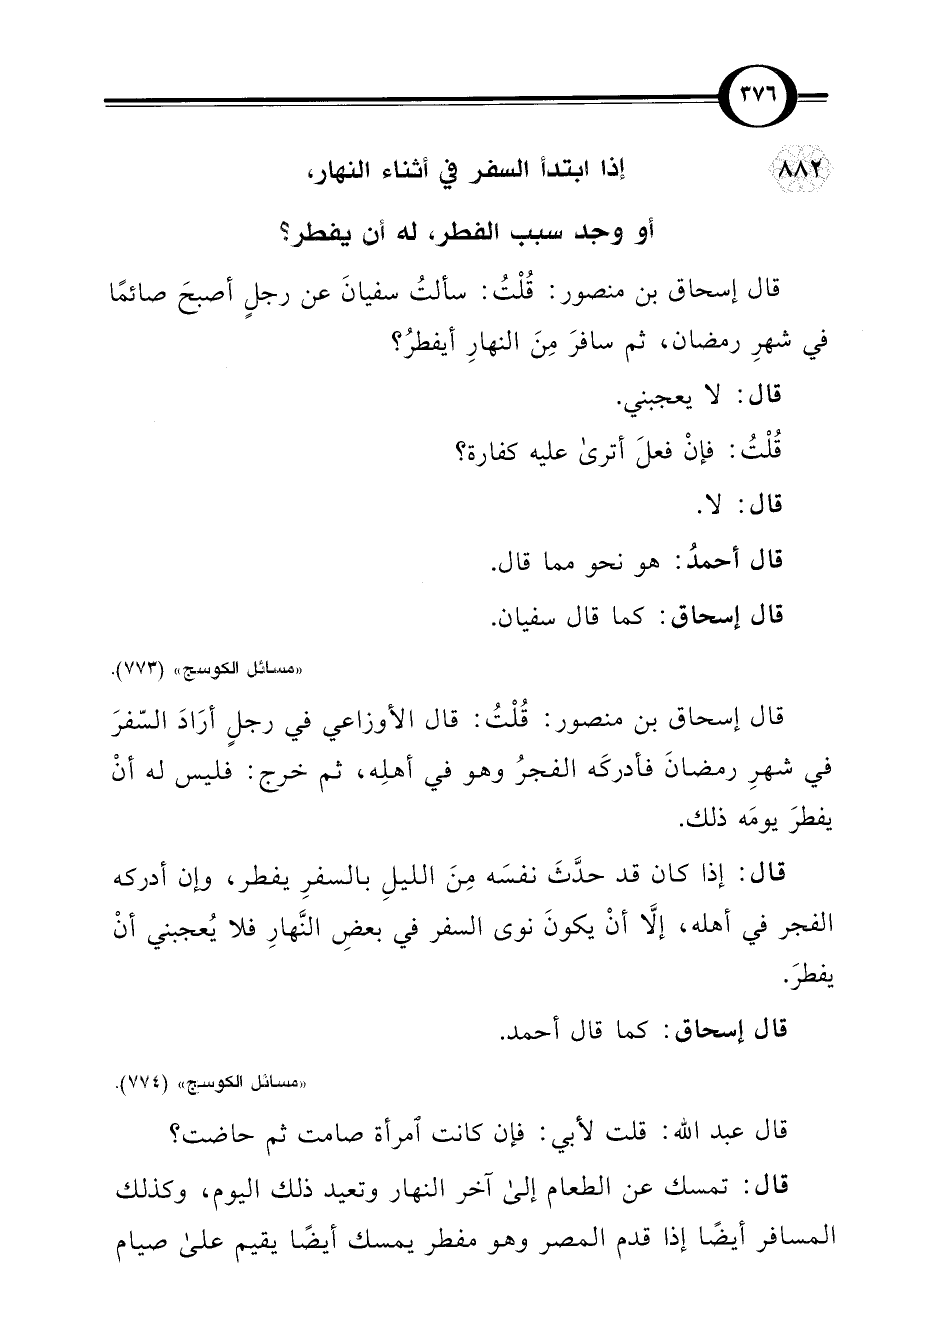 ٣٧٦
٨٨٢ إذا ابتدأ السفر في أثناء النهار،
أو وجد سبب الفطر، له أن يفطر؟
قال إسحاق بن منصور: قُلْتُ: سألتُ سفيانَ عن رجلٍ أصبحَ صائمًا
في شهرِ رمضان، ثم سافرَ مِنَ النهارِ أيفطرُ؟
قال: لا يعجبني.
قُلْتُ: فإنْ فعلَ أترىٰ عليه كفارة؟
قال: لا.
قال أحمدُ: هو نحو مما قال.
قال إسحاق: كما قال سفيان.
«مسائل الكوسج» (٧٧٣).
قال إسحاق بن منصور: قُلْتُ: قال الأوزاعي في رجلٍ أرَادَ السّفرَ
في شهرِ رمضانَ فأدركَه الفجرُ وهو في أهلِه، ثم خرج: فليس له أنْ
يفطرَ يومَه ذلك.
قال: إذا كان قد حدَّثَ نفسَه مِنَ الليلِ بالسفرِ يفطر، وإن أدركه
الفجر في أهله، إلَّا أنْ يكونَ نوى السفر في بعضِ النَّهارِ فلا يُعجبني أنْ
يفطرَ.
قال إسحاق: كما قال أحمد.
«مسائل الكوسج» (٧٧٤).
قال عبد الله: قلت لأبي: فإن كانت ٱمرأة صامت ثم حاضت؟
قال: تمسك عن الطعام إلىٰ آخر النهار وتعيد ذلك اليوم، وكذلك
المسافر أيضًا إذا قدم المصر وهو مفطر يمسك أيضًا يقيم علىٰ صيام